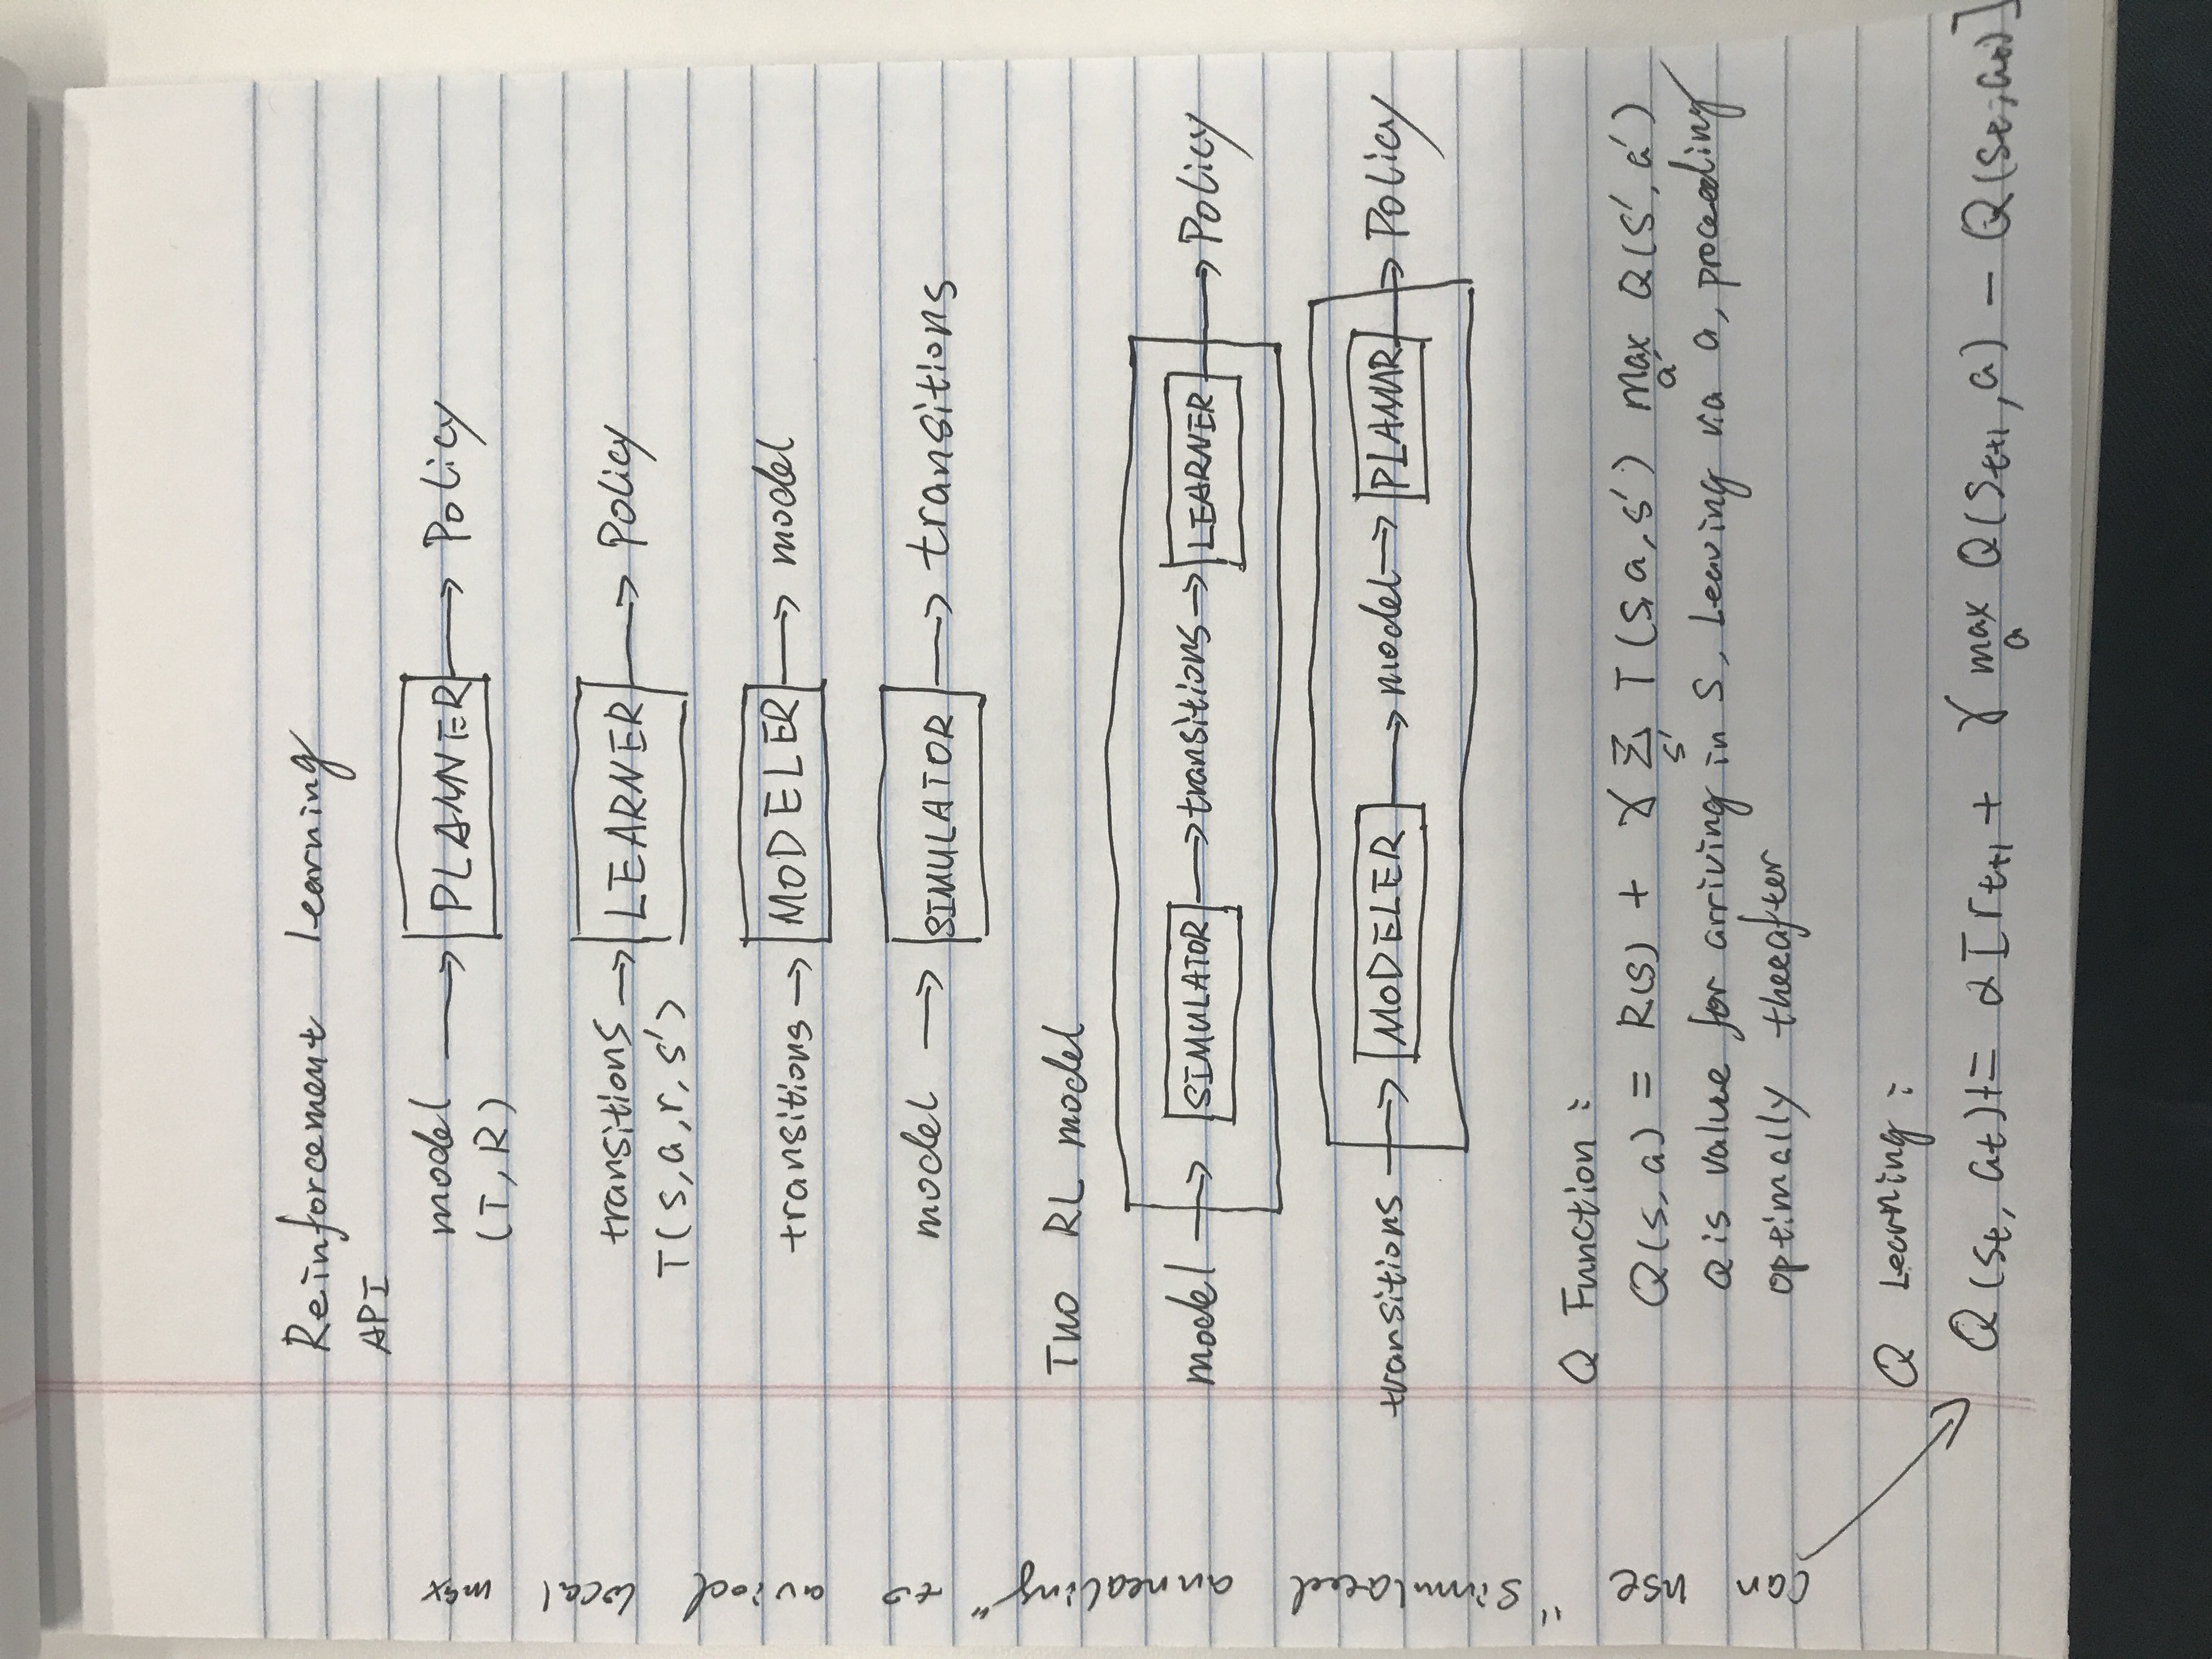 Reinforcement learning
API
model → PLANNER → Policy
(T, R)
transitions → LEARNER → Policy
T(s,a,r,s')
transitions → MODELER → model
model → SIMULATOR → transitions
Two RL model
model → SIMULATOR → transitions → LEARNER → Policy
transitions → MODELER → model → PLANNR → Policy
Q Function :
Q(s, a) = R(s) + γ Σ T(s, a, s') max Q(s', a')
s' a'
Q is value for arriving in s, Leaving via a, proceeding
optimally theeafter
Q Learning :
Q(st, at) += α[rt+1 + γ max Q(st+1, a) - Q(st, at)]
a
Can use "Simulated annealing" to aviod local max